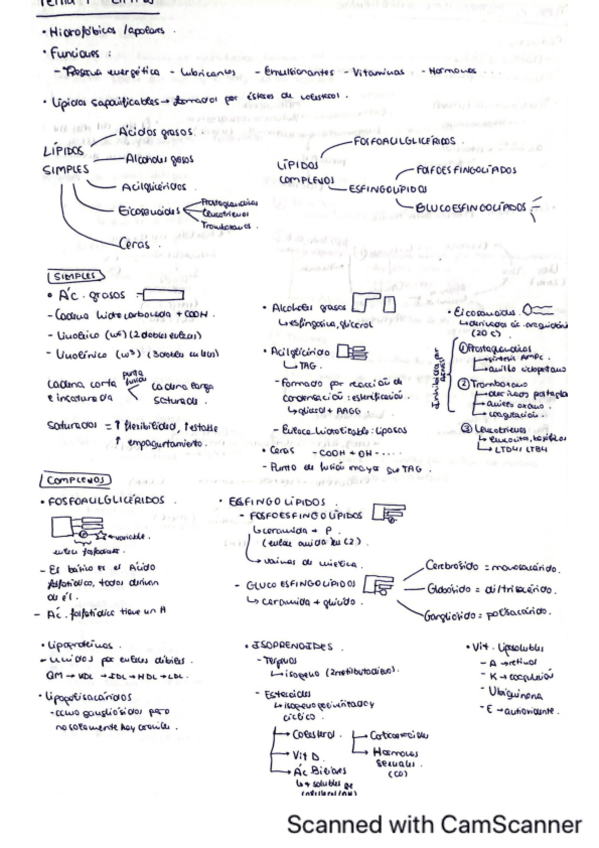 Tema 7 Lípidos
• Hidrofóbicos / apolares.
• Funciones:
- Reserva energética - Lubricantes - Emulsionantes - Vitaminas - Hormonas ...
• Lípidos saponificables → formados por ésteres de colesterol.
LÍPIDOS SIMPLES
Ácidos grasos.
Alcoholes grasos
Acilglicéridos.
Eicosanoides
Prostaglandinas
Leucotrienos
Tromboxanos.
Ceras.
LÍPIDOS COMPLEJOS
FOSFOACILGLICÉRIDOS.
ESFINGOLÍPIDOS
FOSFOESFINGOLÍPIDOS
GLUCOESFINGOLÍPIDOS
SIMPLES
• Ác. grasos
- Cadena hidrocarbonada + COOH.
- Linoleico (w6) (2 dobles enlaces)
- Linolénico (w3) (3 dobles enlaces)
cadena corta e insaturada
punto fusión
cadena larga saturada.
Saturados = ↑ flexibilidad, ↑ estable
↑ empaquetamiento.
• Alcoholes grasos
↳ esfingosina, glicerol
• Acilglicérido
↳ TAG.
- Formado por reacción de
condensación: esterificación.
↳ glicerol + AAGG
- Enlace hidrolizable: lipasas
• Ceras - COOH + OH - ....
- Punto de fusión mayor que TAG.
• Eicosanoides.
↳ derivados de araquidónico
(20 C)
① Prostaglandinas
↳ síntesis AMPc.
↳ anillo ciclopentano
② Tromboxano
↳ anillo oxano.
↳ coagulación.
③ Leucotrienos
↳ LTD4 / LTB4
COMPLEJOS
• FOSFOACILGLICÉRIDOS.
variable.
enlace fosfodiester.
- El básico es el Ácido
fosfatídico, todos derivan
de él.
- Ác. fosfatídico tiene un H
• ESFINGOLÍPIDOS
- FOSFOESFINGOLÍPIDOS
↳ ceramida + P.
(enlace amida en C2).
→ vainas de mielina.
- GLUCOESFINGOLÍPIDOS
↳ ceramida + glúcido.
Cerebrósido = monosacárido.
Globósido = di/trisacárido.
Gangliósido = polisacárido.
• Lipoproteínas.
- Unidos por enlaces débiles.
QM → VDL → IDL → HDL → LDL.
• Lipopolisacáridos
- como gangliósidos pero
• ISOPRENOIDES.
- Terpenos
↳ isopreno (2 metilbutadieno).
- Esteroides
↳ isopreno polimerizado y
cíclico.
→ Colesterol.
→ Vit D.
→ Ác Biliares
↳ + solubles que
colesterol (OH)
→ Corticosteroides
→ Hormonas
sexuales.
• Vit. Liposolubles
- A → retinol
- K → coagulación
- Ubiquinona
- E → antioxidante.
Scanned with CamScanner